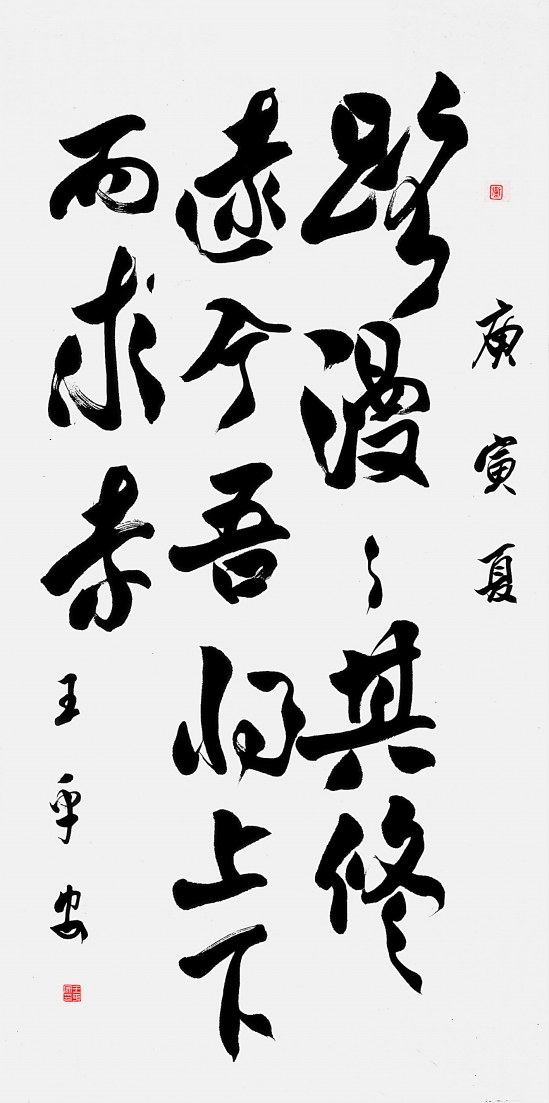 庚寅夏
路漫々其修
遠兮吾将上下
而求索
王平